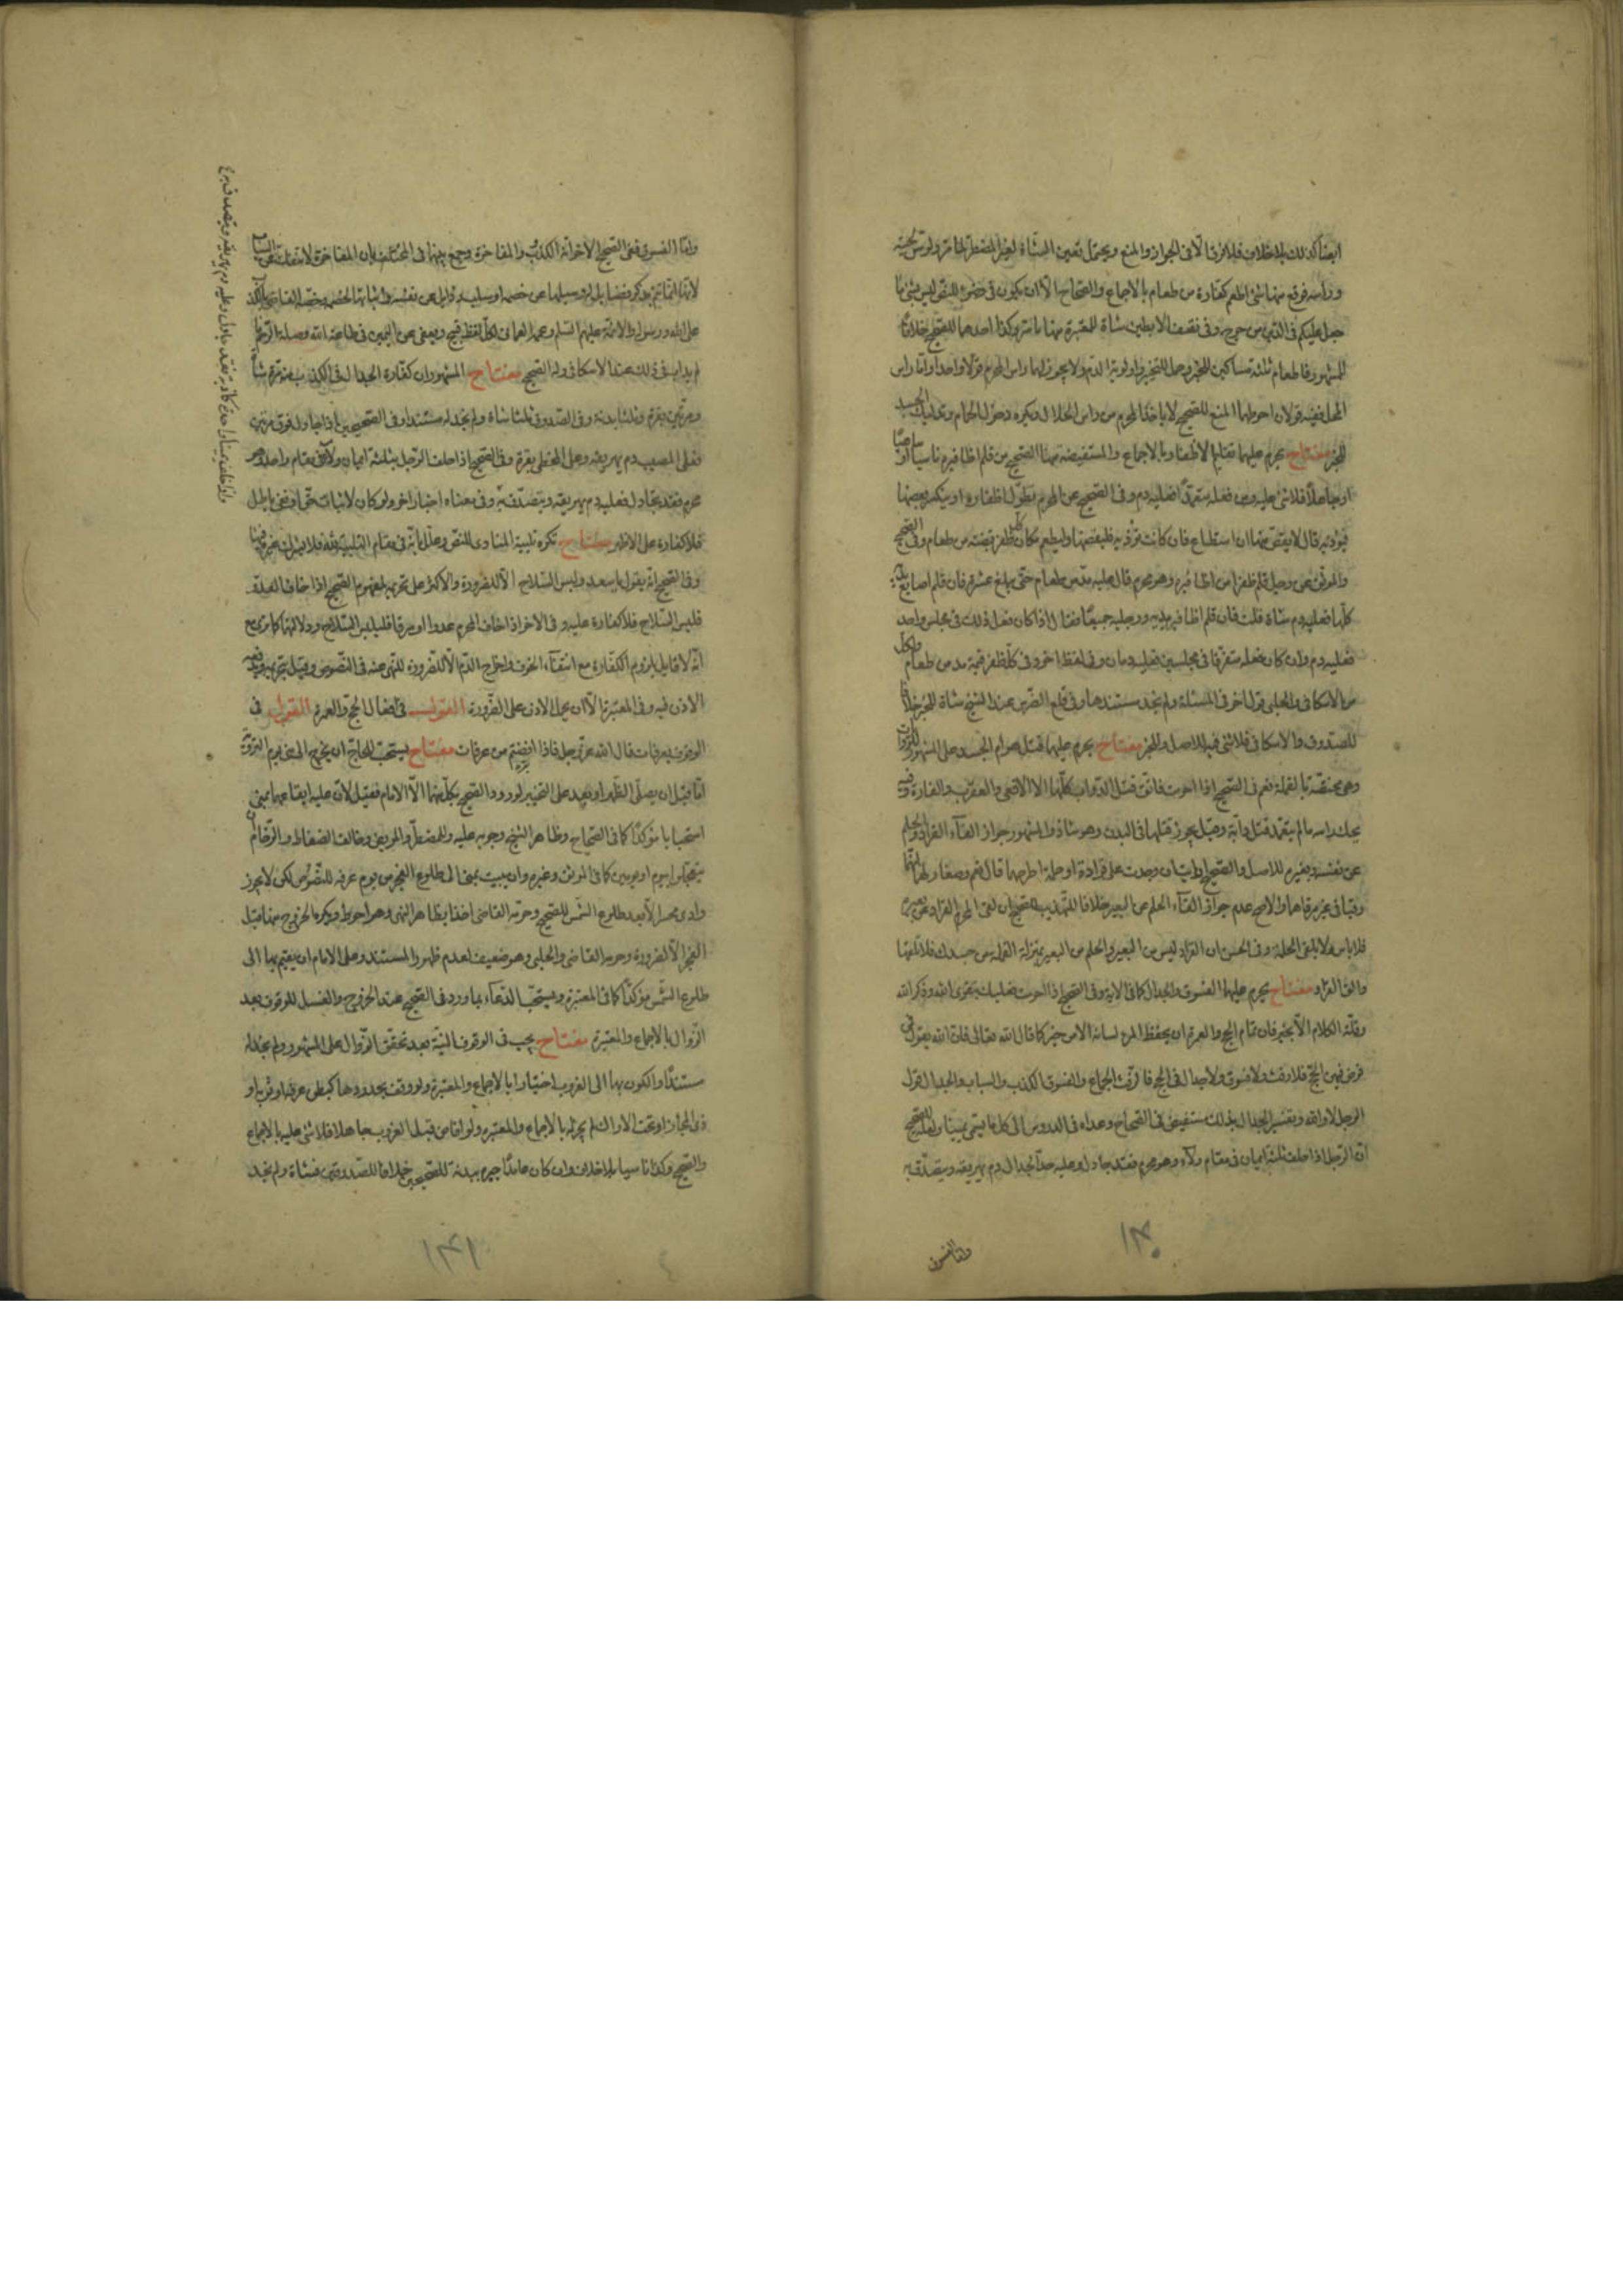 ايضا كذلك بلا خلاف فلا فرق الا في الجواز والمنع ويحتمل تعين الشاة لغير المضطر لما مر ولو مس لحيته
وراسه فوقع منها شئ اطعم كفا من طعام بالاجماع والصحاح الا ان يكون في وضوء للنص ليس بشئ ما
جعل عليكم في الدين من حرج وفي نتف الابطين شاة للمعتبرة منها ما مر وكذا احدهما للصحيح خلافا
للمشهور فاطعام ثلثة مساكين للخبر وحمل للتخيير واولوية الدم ولا يجوز لهما راس المحرم قولا واحدا واما راس
المحل ففيه قولان احوطهما المنع للصحيح لا ياخذ المحرم من راس الحلال ويكره دخول الحمام وتدليك الجسد
للخبر مفتاح يحرم عليهما تقليم الاظفار بالاجماع والمستفيضة منها الصحيح من قلم اظافيره ناسيا او ساهيا
او جاهلا فلا شئ عليه ومن فعله متعمدا فعليه دم وفي الصحيح عن المحرم تطول اظفاره او ينكسر بعضها
فيؤذيه قال لا يقص منها ان استطاع فان كانت تؤذيه فليقصها وليطعم مكان كل ظفر قبضة من طعام وفي الصحيح
والموثق عن رجل قلم ظفرا من اظافيره وهو محرم قال عليه مد من طعام حتى يبلغ عشرة فان قلم اصابع يديه
كلها فعليه دم شاة قلت فان قلم اظافير يديه ورجليه جميعا فقال اذا كان فعل ذلك في مجلس واحد
فعليه دم وان كان فعله متفرقا في مجلسين فعليه دمان وفي لفظ اخر وفي كل ظفر قيمة مد من طعام ولكل
من الاسكافي والحلبي قول اخر في المسئلة ولم نجد مستندهما وفي قلع الضرس عند الشيخ شاة للخبر خلافا
للصدوق والاسكافي فلا شئ فيه للاصل وللخبر مفتاح يحرم عليهما قتل هوام الجسد على المشهور
يحك راسه ما لم يتعمد قتل دابة وقيل يجوز قتلها في البدن وهو شاذ والمشهور جواز القاء القراد والحلم
عن نفسه وبعيره للاصل والصحيح ارايت ان وجدت على قرادة او حلمة اطرحهما قال نعم وصغار لهما انهما
رقيا في غير مرقاهما والاصح عدم جواز القاء الحلم عن البعير خلافا للتهذيب للصحيح ان القى المحرم القراد عن بعيره
فلا باس ولا يلقى الحلمة وفي الحسن ان القراد ليس من البعير والحلم من البعير بمنزلة القملة من جسدك فلا تلقها
والق القراد مفتاح يحرم عليهما الفسوق والجدال كما في الاية وفي الصحيح اذا احرمت فعليك بتقوى الله وذكر الله
وقلة الكلام الا بخير فان تمام الحج والعمرة ان يحفظ المرء لسانه الا من خير كما قال الله تعالى فان الله يقول فمن
فرض فيهن الحج فلا رفث ولا فسوق ولا جدال في الحج فالرفث الجماع والفسوق الكذب والسباب والجدال قول
الرجل لا والله وتفسير الجدال بذلك مستفيض في الصحاح وعداه في الدروس الى كل ما يسمى يمينا ولعله للصحيح
ان الرجل اذا حلف ثلثة ايمان في مقام ولاء وهو محرم فقد جادل وعليه حد الجدال دم يهريقه ويتصدق به
واما الفسوق
١٣٠
واما الفسوق ففي الصحيح الاخر انه الكذب والمفاخرة وجمع بينهما في المختلف بان المفاخرة لا تنفك عن السباب
على الله ورسوله والائمة عليهم السلم وعمه العماني لكل لفظ قبيح ويعفى عن اليمين في طاعة الله وصلة الرحم
مفتاح المشهور ان كفارة الجدال في الكذب منه مرة شاة
ومرتين بقرة وثلثا بدنة وفي الصدق ثلثا شاة ولم نجد له مستندا وفي الصحيحين اذا جادل فوق مرتين
فعلى المصيب دم يهريقه وعلى المخطى بقرة وفي الصحيح اذا حلف الرجل بثلثة ايمان ولاء في مقام واحد وهو
محرم فقد جادل فعليه دم يهريقه ويتصدق به وفي معناه اخبار اخر ولو كان لاثبات حق او نفي باطل
فلا كفارة على الاظهر مفتاح تكره تلبية المنادي للنص وعلل بانه في مقام التلبية لله فلا يشرك غيره فيها
وفي الصحيح انه يقول يا سعد ولبس السلاح الا للضرورة والاكثر على تحريمه لمفهوم الصحيح اذا خاف العدو
فلبس السلاح فلا كفارة عليه وفي الاخر اذا خاف المحرم عدوا او سرقا فليلبس السلاح
انه لا قايل بلزوم الكفارة مع انتفاء الخوف واخراج الدم الا للضرورة للنهي عنه في النصوص وقيل بتحريمه
الاذن فيه وفي المعتبرة الا ان يحمل الاذن على الضرورة القول في افعال الحج والعمرة القول في
الوقوف بعرفات قال الله عز وجل فاذا افضتم من عرفات مفتاح يستحب للحاج ان يخرج الى منى يوم التروية
اما قبل ان يصلي الظهر او بعده على التخيير لورود الصحيح بكل منهما الا الامام فقيل لان عليه ايقاعهما بمنى
استحبابا مؤكدا كما في الصحاح وظاهر الشيخ وجوبه عليه وللمضطر والمريض وخائف الضغاط والزحام ان
يتعجلوا بيوم او يومين كما في الموثق وغيره وان يبيت بمنى الى طلوع الفجر من يوم عرفة للنصوص لكن لا يجوز
وادي محسر الا بعد طلوع الشمس للصحيح وحرمه القاضي اخذا بظاهر النهي وهو احوط ويكره الخروج منها قبل
الفجر الا لضرورة وحرمه القاضي والحلبي وهو ضعيف لعدم ظهور المستند وعلى الامام ان يقيم بها الى
طلوع الشمس مؤكدا كما في المعتبرة ويستحب الدعاء بما ورد في الصحيح عند الخروج والغسل للوقوف بعد
الزوال بالاجماع والمعتبرة مفتاح يجب في الوقوف النية بعد تحقق الزوال على المشهور ولم نجد له
مستندا والكون بها الى الغروب اختيارا بالاجماع والمعتبرة ولو وقف بحدودها كبطن عرفة او ثوية او
ذي المجاز او تحت الاراك لم يجزئه بالاجماع والمعتبرة ولو افاض قبل الغروب جاهلا فلا شئ عليه بالاجماع
والصحيح وكذا ناسيا بلا خلاف وان كان عامدا جبره ببدنة للصحيحين خلافا للصدوقين فشاة ولم نجد
١٣١